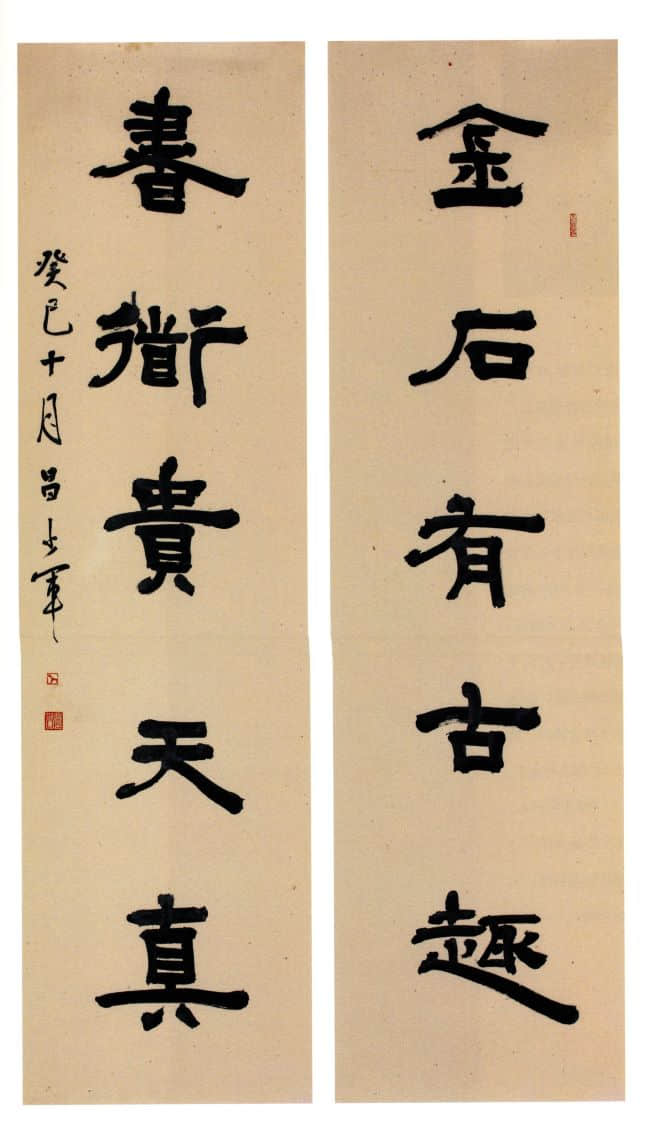 金石有古趣
書衜貴天真
癸巳十月昌軍